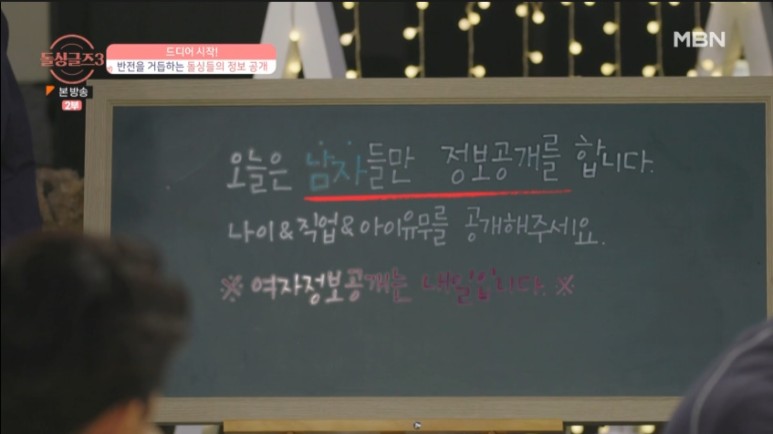 MBN
돌싱글즈3
드디어 시작!
반전을 거듭하는 돌싱들의 정보 공개
본 방송
2부
오늘은 남자들만 정보공개를 합니다.
나이&직업&아이유무를 공개해주세요.
※ 여자정보공개는 내일입니다. ※